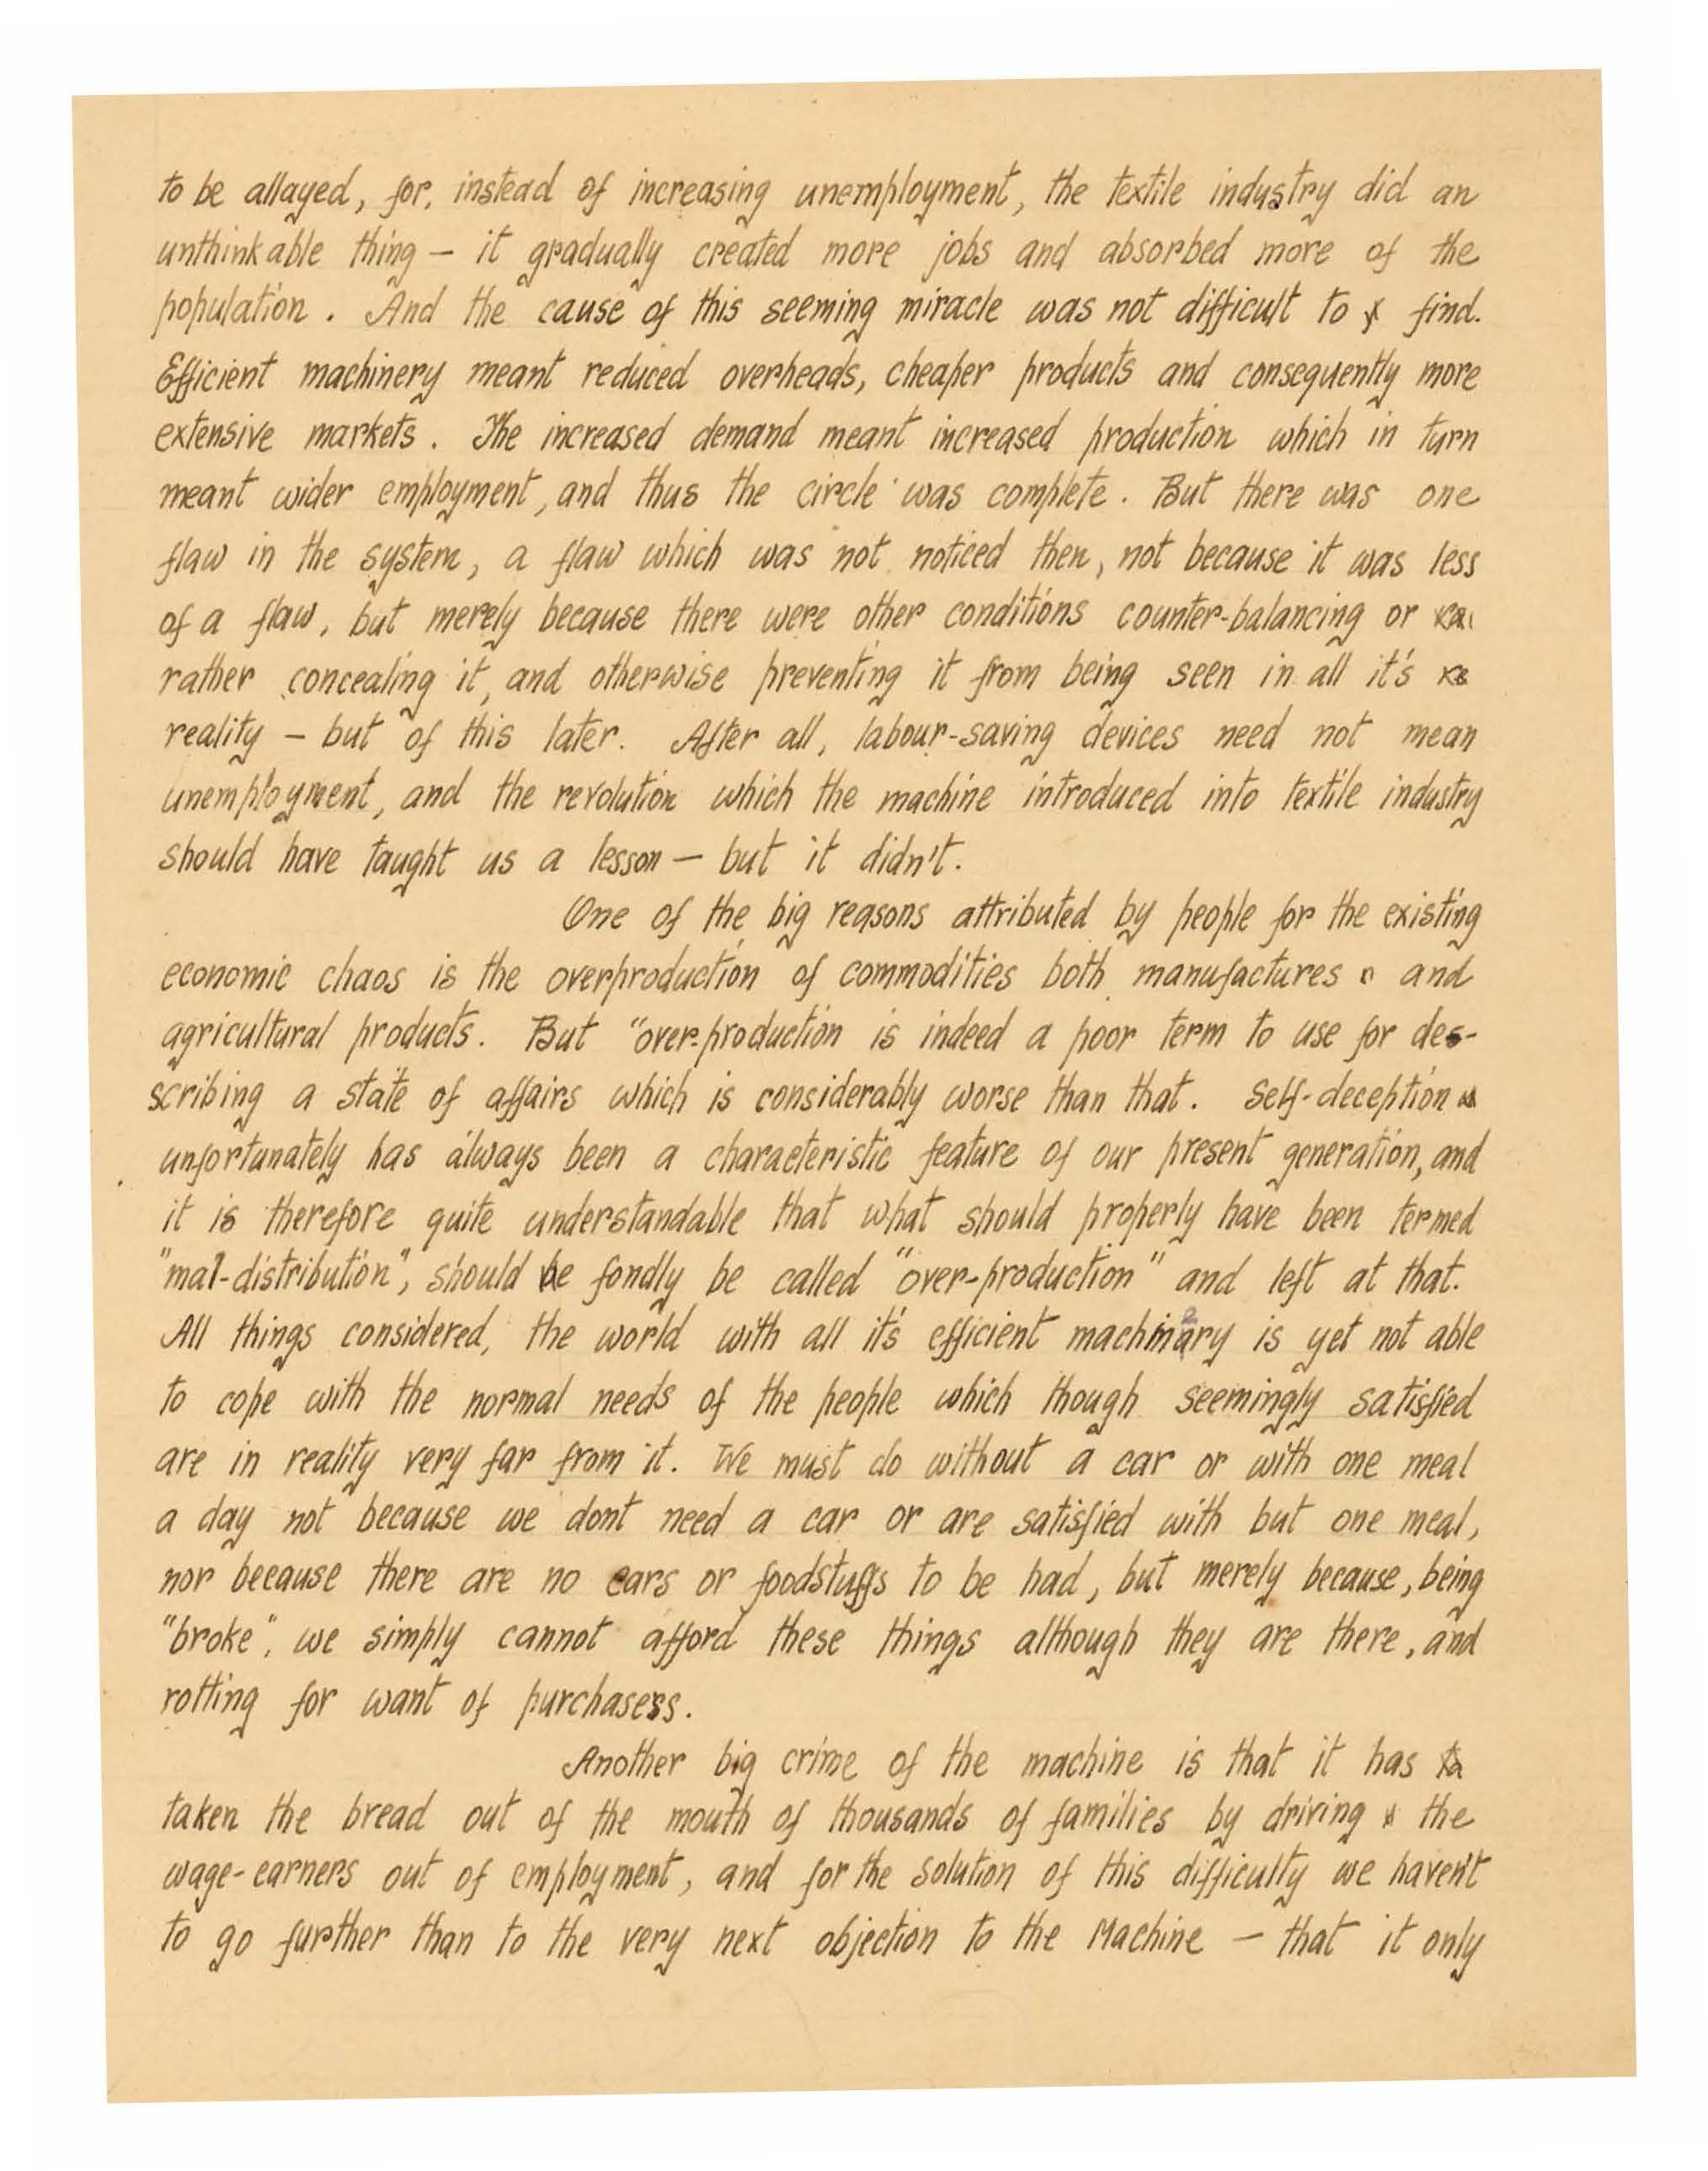 to be allayed, for, instead of increasing unemployment, the textile industry did an
unthinkable thing — it gradually created more jobs and absorbed more of the
population. And the cause of this seeming miracle was not difficult to find.
Efficient machinery meant reduced overheads, cheaper products and consequently more
extensive markets. The increased demand meant increased production which in turn
meant wider employment, and thus the circle was complete. But there was one
flaw in the system, a flaw which was not noticed then, not because it was less
of a flaw, but merely because there were other conditions counter-balancing or
rather concealing it, and otherwise preventing it from being seen in all it's
reality — but of this later. After all, labour-saving devices need not mean
unemployment, and the revolution which the machine introduced into textile industry
should have taught us a lesson — but it didn't.
One of the big reasons attributed by people for the existing
economic chaos is the overproduction of commodities both manufactures and
agricultural products. But "over-production is indeed a poor term to use for des-
scribing a state of affairs which is considerably worse than that. Self-deception
unfortunately has always been a characteristic feature of our present generation, and
it is therefore quite understandable that what should properly have been termed
"mal-distribution", should be fondly be called "over-production" and left at that.
All things considered, the world with all it's efficient machinery is yet not able
to cope with the normal needs of the people which though seemingly satisfied
are in reality very far from it. We must do without a car or with one meal
a day not because we dont need a car or are satisfied with but one meal,
nor because there are no cars or foodstuffs to be had, but merely because, being
"broke", we simply cannot afford these things although they are there, and
rotting for want of purchasers.
Another big crime of the machine is that it has
taken the bread out of the mouth of thousands of families by driving the
wage-earners out of employment, and for the solution of this difficulty we haven't
to go further than to the very next objection to the Machine — that it only